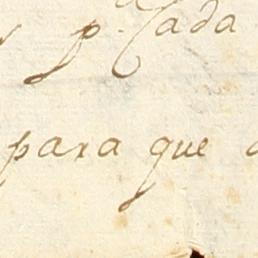 y p.a Cada
para que a